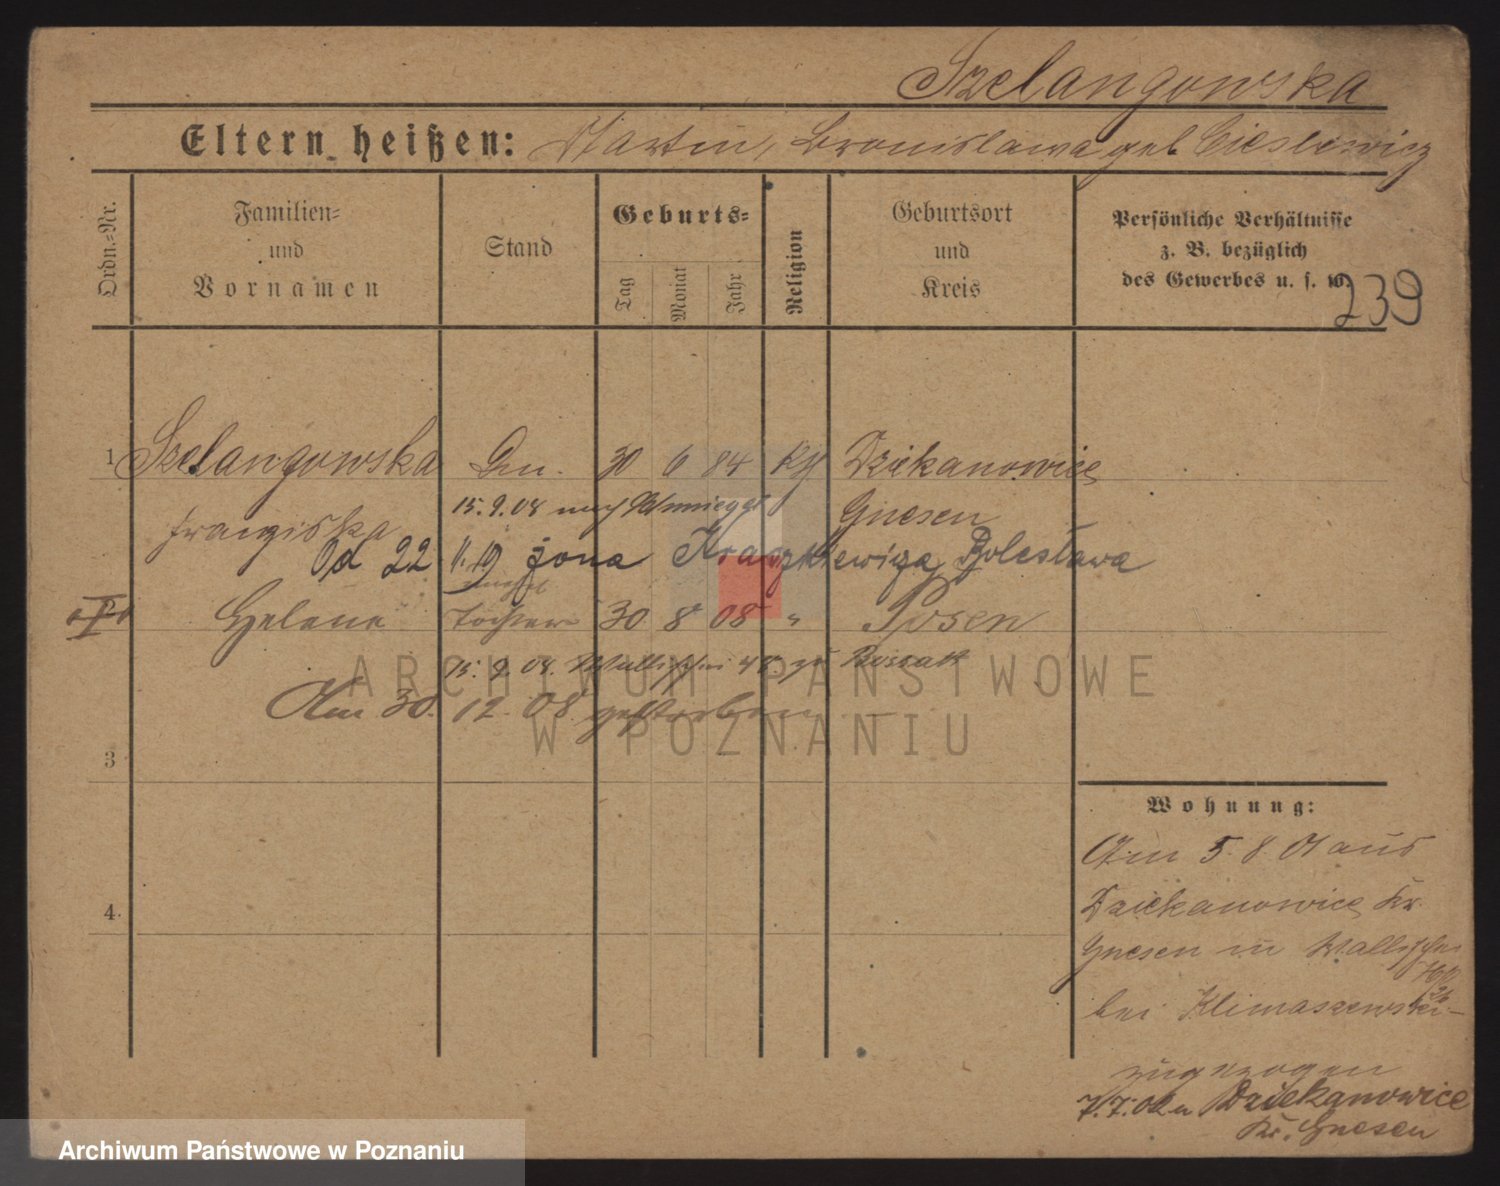 Szelangowska
Eltern heißen: Martin, Bronislawa geb Cieslewicz
Ordn.=Nr.
Familien=
und
Vornamen
Stand
Geburts=
Tag
Monat
Jahr
Religion
Geburtsort
und
Kreis
Persönliche Verhältnisse
z. B. bezüglich
des Gewerbes u. s. w.
239
1 Szelangowska 30 6 84 Dziekanowice
15. 9. 08 nach Gnesen
Franziska
Od 22 11. 19 żona Kraczkiewicza Bolesława
Helene Tochter 30 8 08 " Posen
15. 9. 08. Wallischei 48. zu
Am 30. 12. 08 gestorben
3
4.
Wohnung:
Am 5. 8. 07 aus
Dziekanowice Kr.
Gnesen in Wallischei
bei Klimaszewski
zugezogen
Dziekanowice
Kr. Gnesen
ARCHIWUM PAŃSTWOWE
W POZNANIU
Archiwum Państwowe w Poznaniu